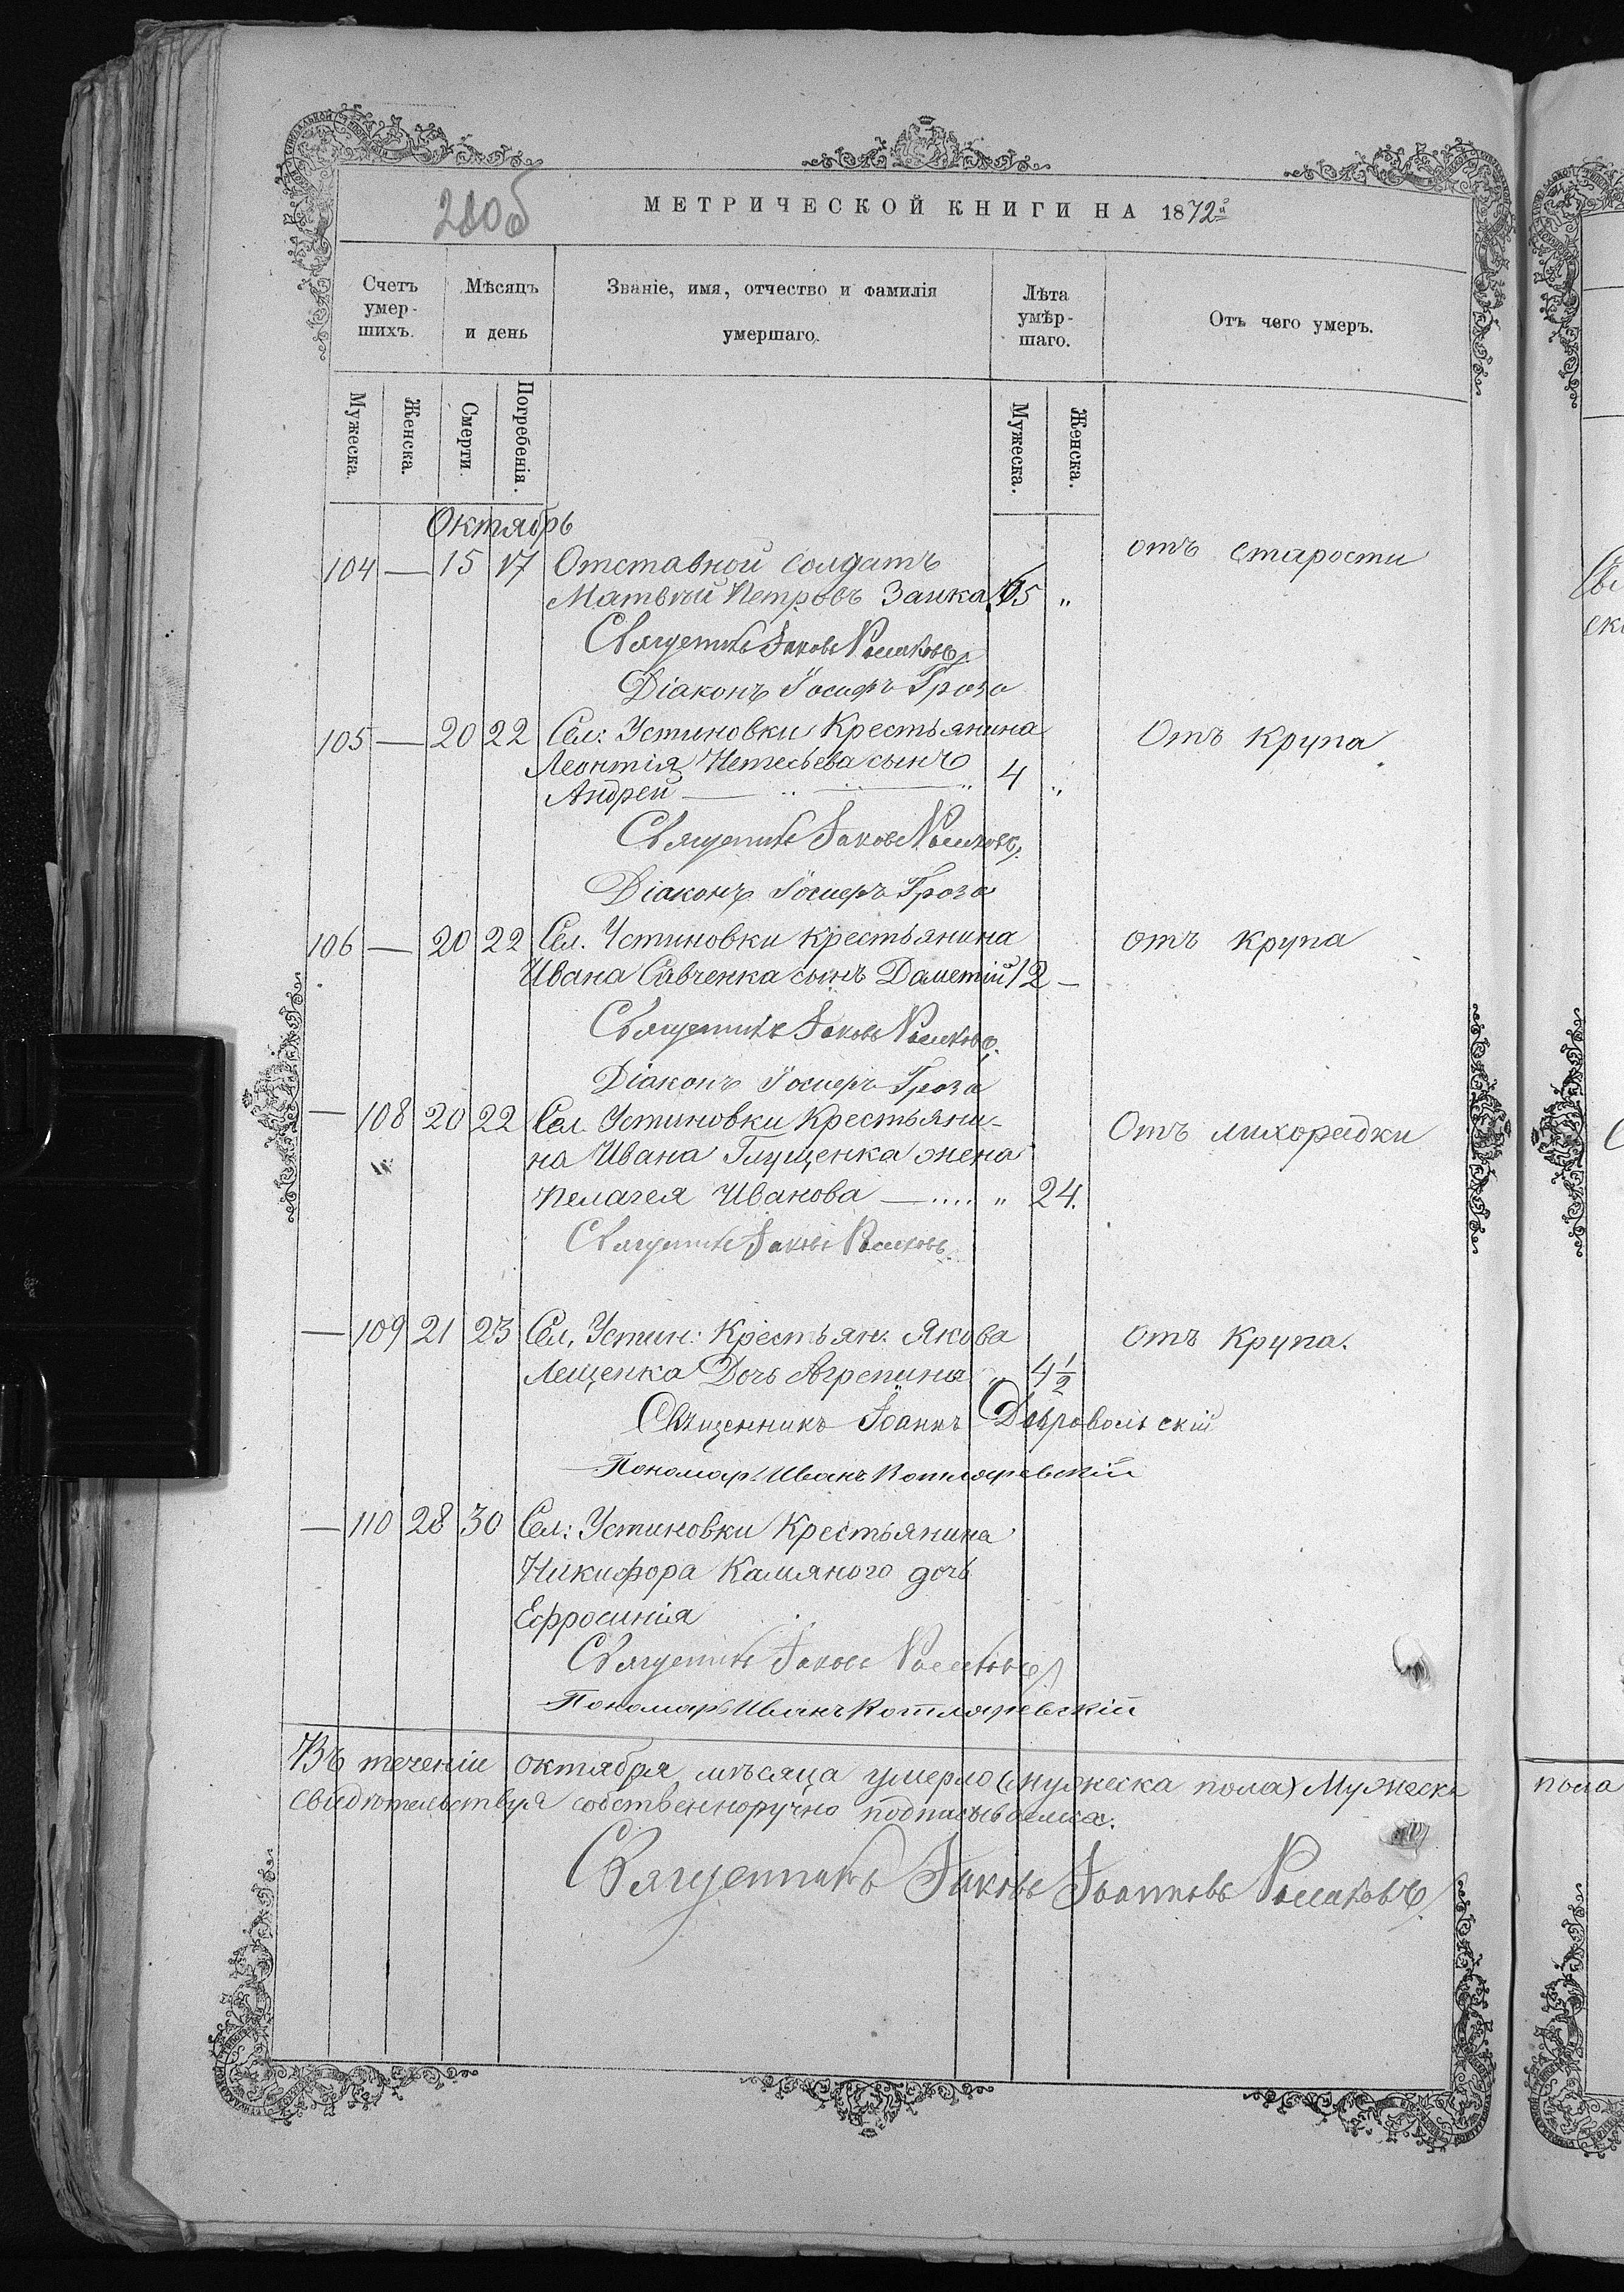 280б
МЕТРИЧЕСКОЙ КНИГИ НА 1872й
Счетъ умер- шихъ.
Мѣсяцъ и день
Званіе, имя, отчество и фамилія умершаго.
Лѣта умѣр- шаго.
Отъ чего умеръ.
Мужеска.
Женска.
Смерти.
Погребенія.
Мужеска.
Женска.
Октябрь
104 — 15 17 Отставной солдатъ отъ старости
Матвѣй Петровъ Заика 65 „
Священникъ Іаковъ
Діаконъ Іосифъ Гроза
105 — 20 22 Сел: Устиновки Крестьянина Отъ крупа
Леонтія сынъ 4 „
Андрей — „ „ — „
Священникъ Іаковъ
Діаконъ Іосифъ Гроза
106 — 20 22 Сел. Устиновки крестьянина отъ крупа
Ивана Савченка сынъ Дометій 12 —
Священникъ Іаковъ
Діаконъ Іосифъ Гроза
— 108 20 22 Сел. Устиновки Крестьяни- Отъ лихорадки
на Ивана Глущенка жена
Пелагея Иванова — .... „ 24.
Священникъ Іаковъ
— 109 21 23 Сел. Устин: Крестьян: Якова отъ Крупа.
Лещенка Дочь Агрепина „ 4½
Священникъ Іоаннъ Добровольскій
Пономарь Иванъ Котляревскій
— 110 28 30 Сел: Устиновки Крестьянина
Никифора Камяного дочь
Ефросинія
Священникъ Іаковъ
Пономарь Иванъ Котляревскій
Въ теченіи октября мѣсяца умерло (мужеска пола) Мужеска
свидѣтельствуя собственноручно подписываемся.
Священникъ Іаковъ Іоанновъ
пола